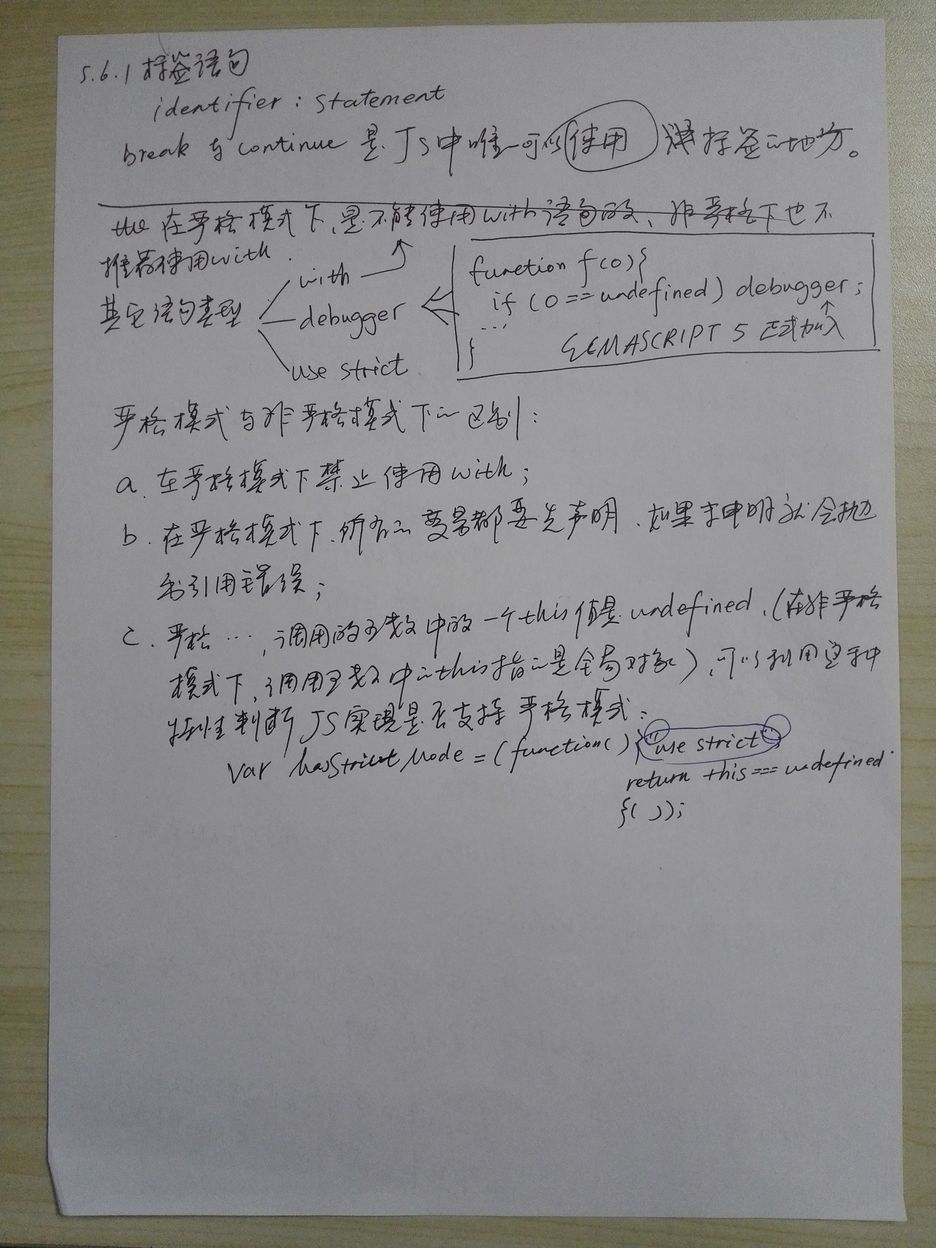 5.6.1 标签语句
identifier : statement
break 与 continue 是 JS中唯一可以使用 标签的地方。
在严格模式下,是不能使用with语句的、非严格下也不
推荐使用with.
其它语句类型
with
debugger
use strict.
function f(o){
if (o == undefined) debugger;
...
}
ECMASCRIPT 5 正式加入
严格模式与非严格模式下的区别:
a. 在严格模式下禁止使用with;
b. 在严格模式下,所有的变量都要先声明、如果未申明就会抛
出引用错误;
c. 严格 ···, 调用的函数中的一个this值是undefined、(在非严格
模式下,调用函数中的this指的是全局对象),可以利用这种
特性判断JS实现是否支持严格模式:
var hasStrictMode = (function( ){"use strict"
return this === undefined
}( ));